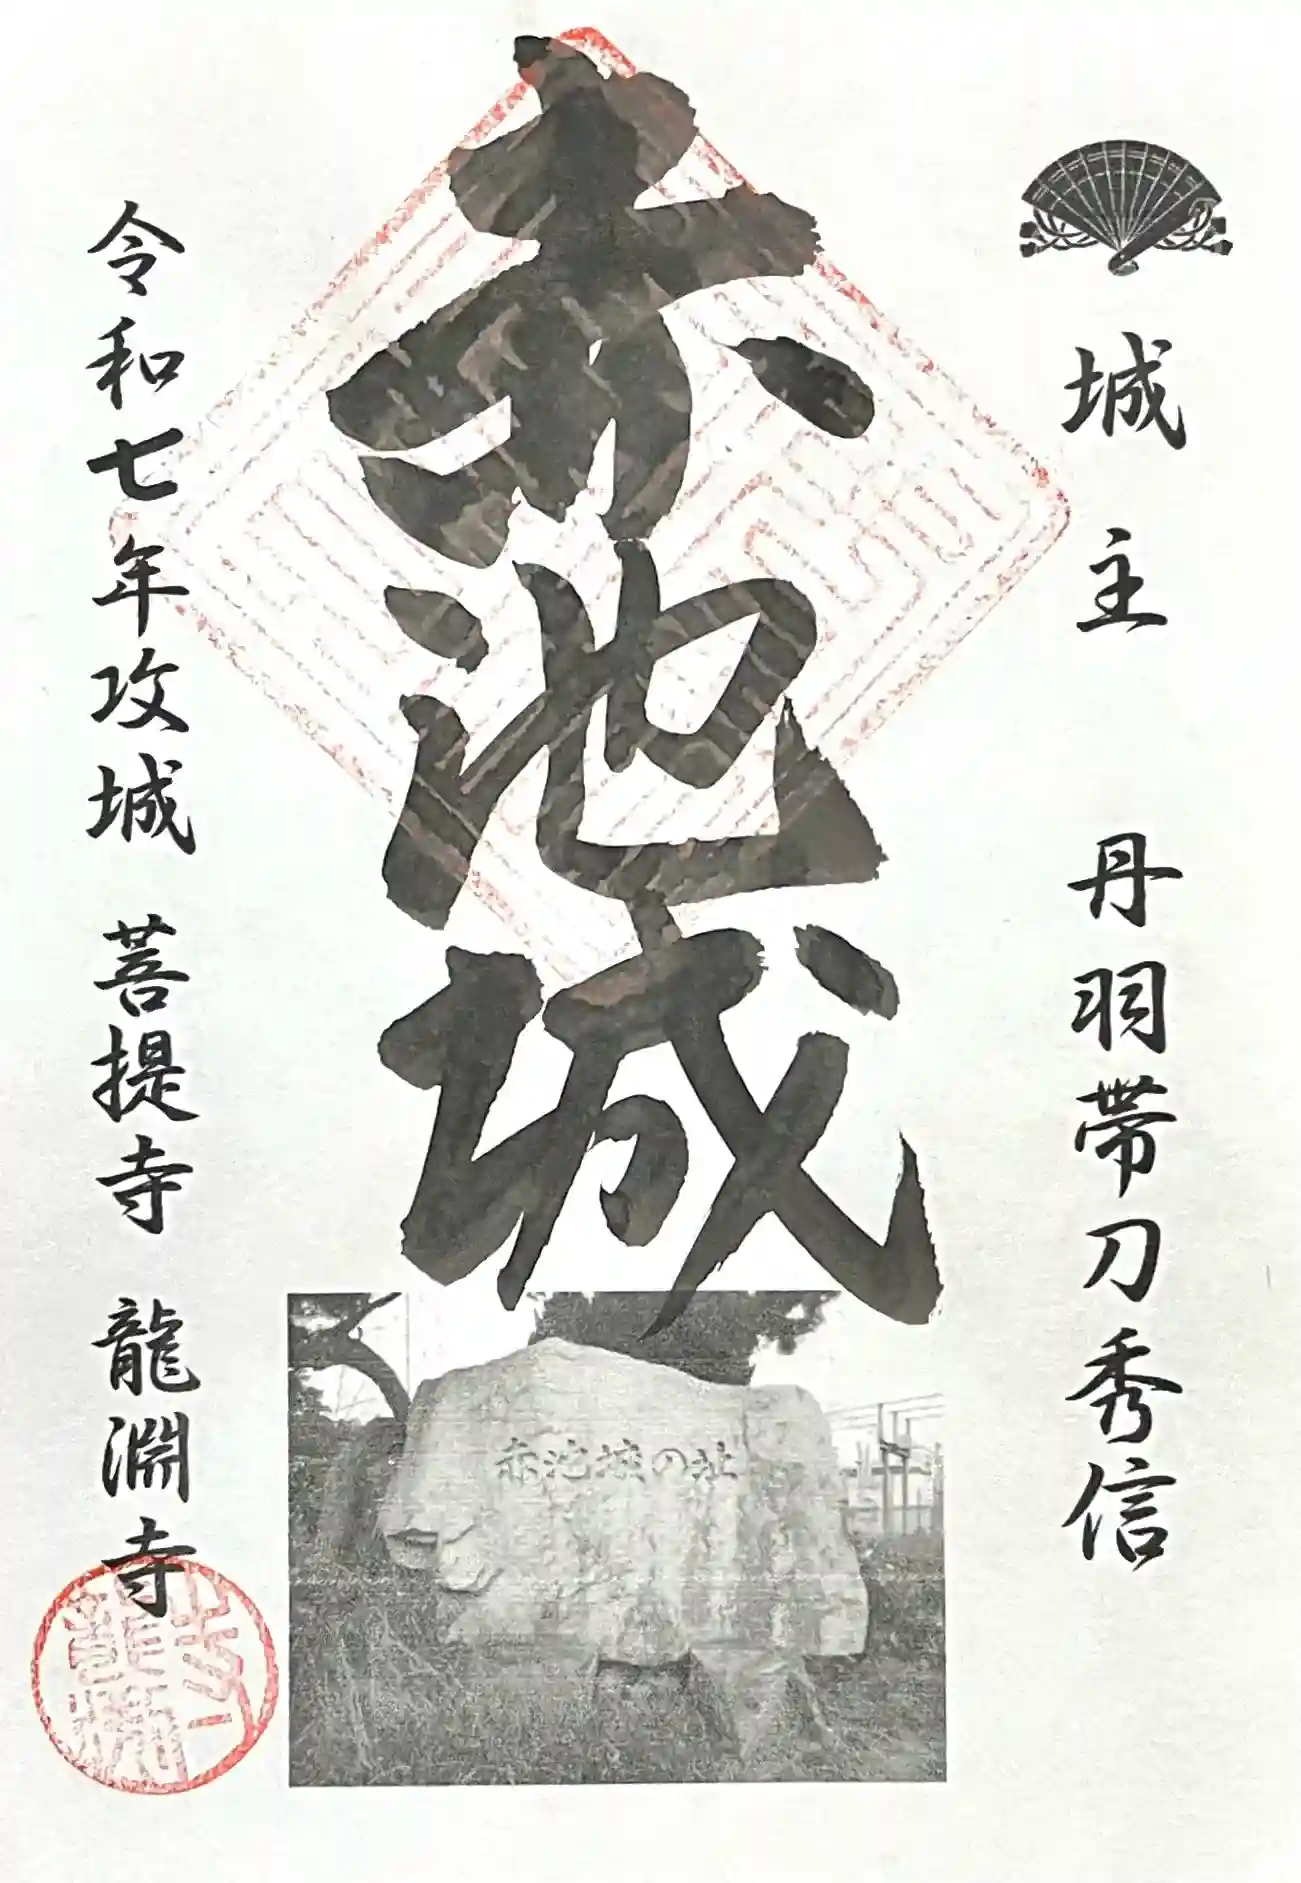 城主 丹羽帯刀秀信
赤池城
赤池城の址
令和七年攻城 菩提寺 龍淵寺